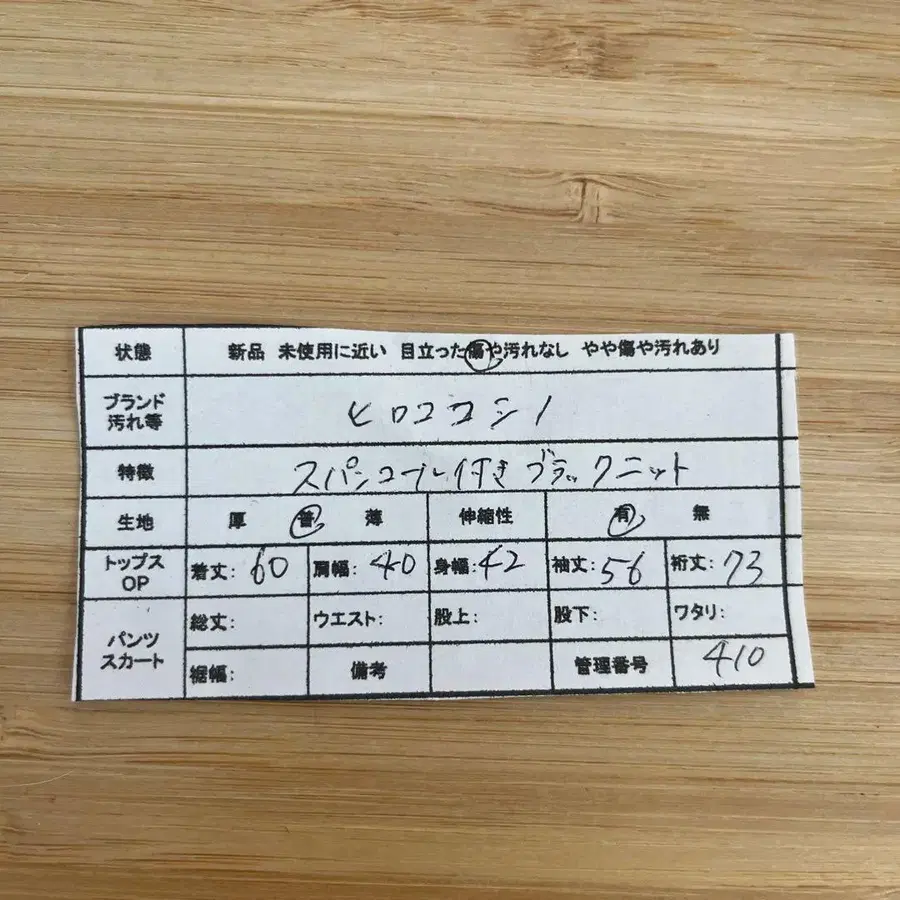 状態 新品 未使用に近い 目立った傷や汚れなし やや傷や汚れあり
ブランド汚れ等 ヒロココシノ
特徴 スパンコール付きブラックニット
生地 厚 普 薄 伸縮性 有 無
トップスOP 着丈:60 肩幅:40 身幅:42 袖丈:56 裄丈:73
パンツスカート 総丈: ウエスト: 股上: 股下: ワタリ:
裾幅: 備考 管理番号 410